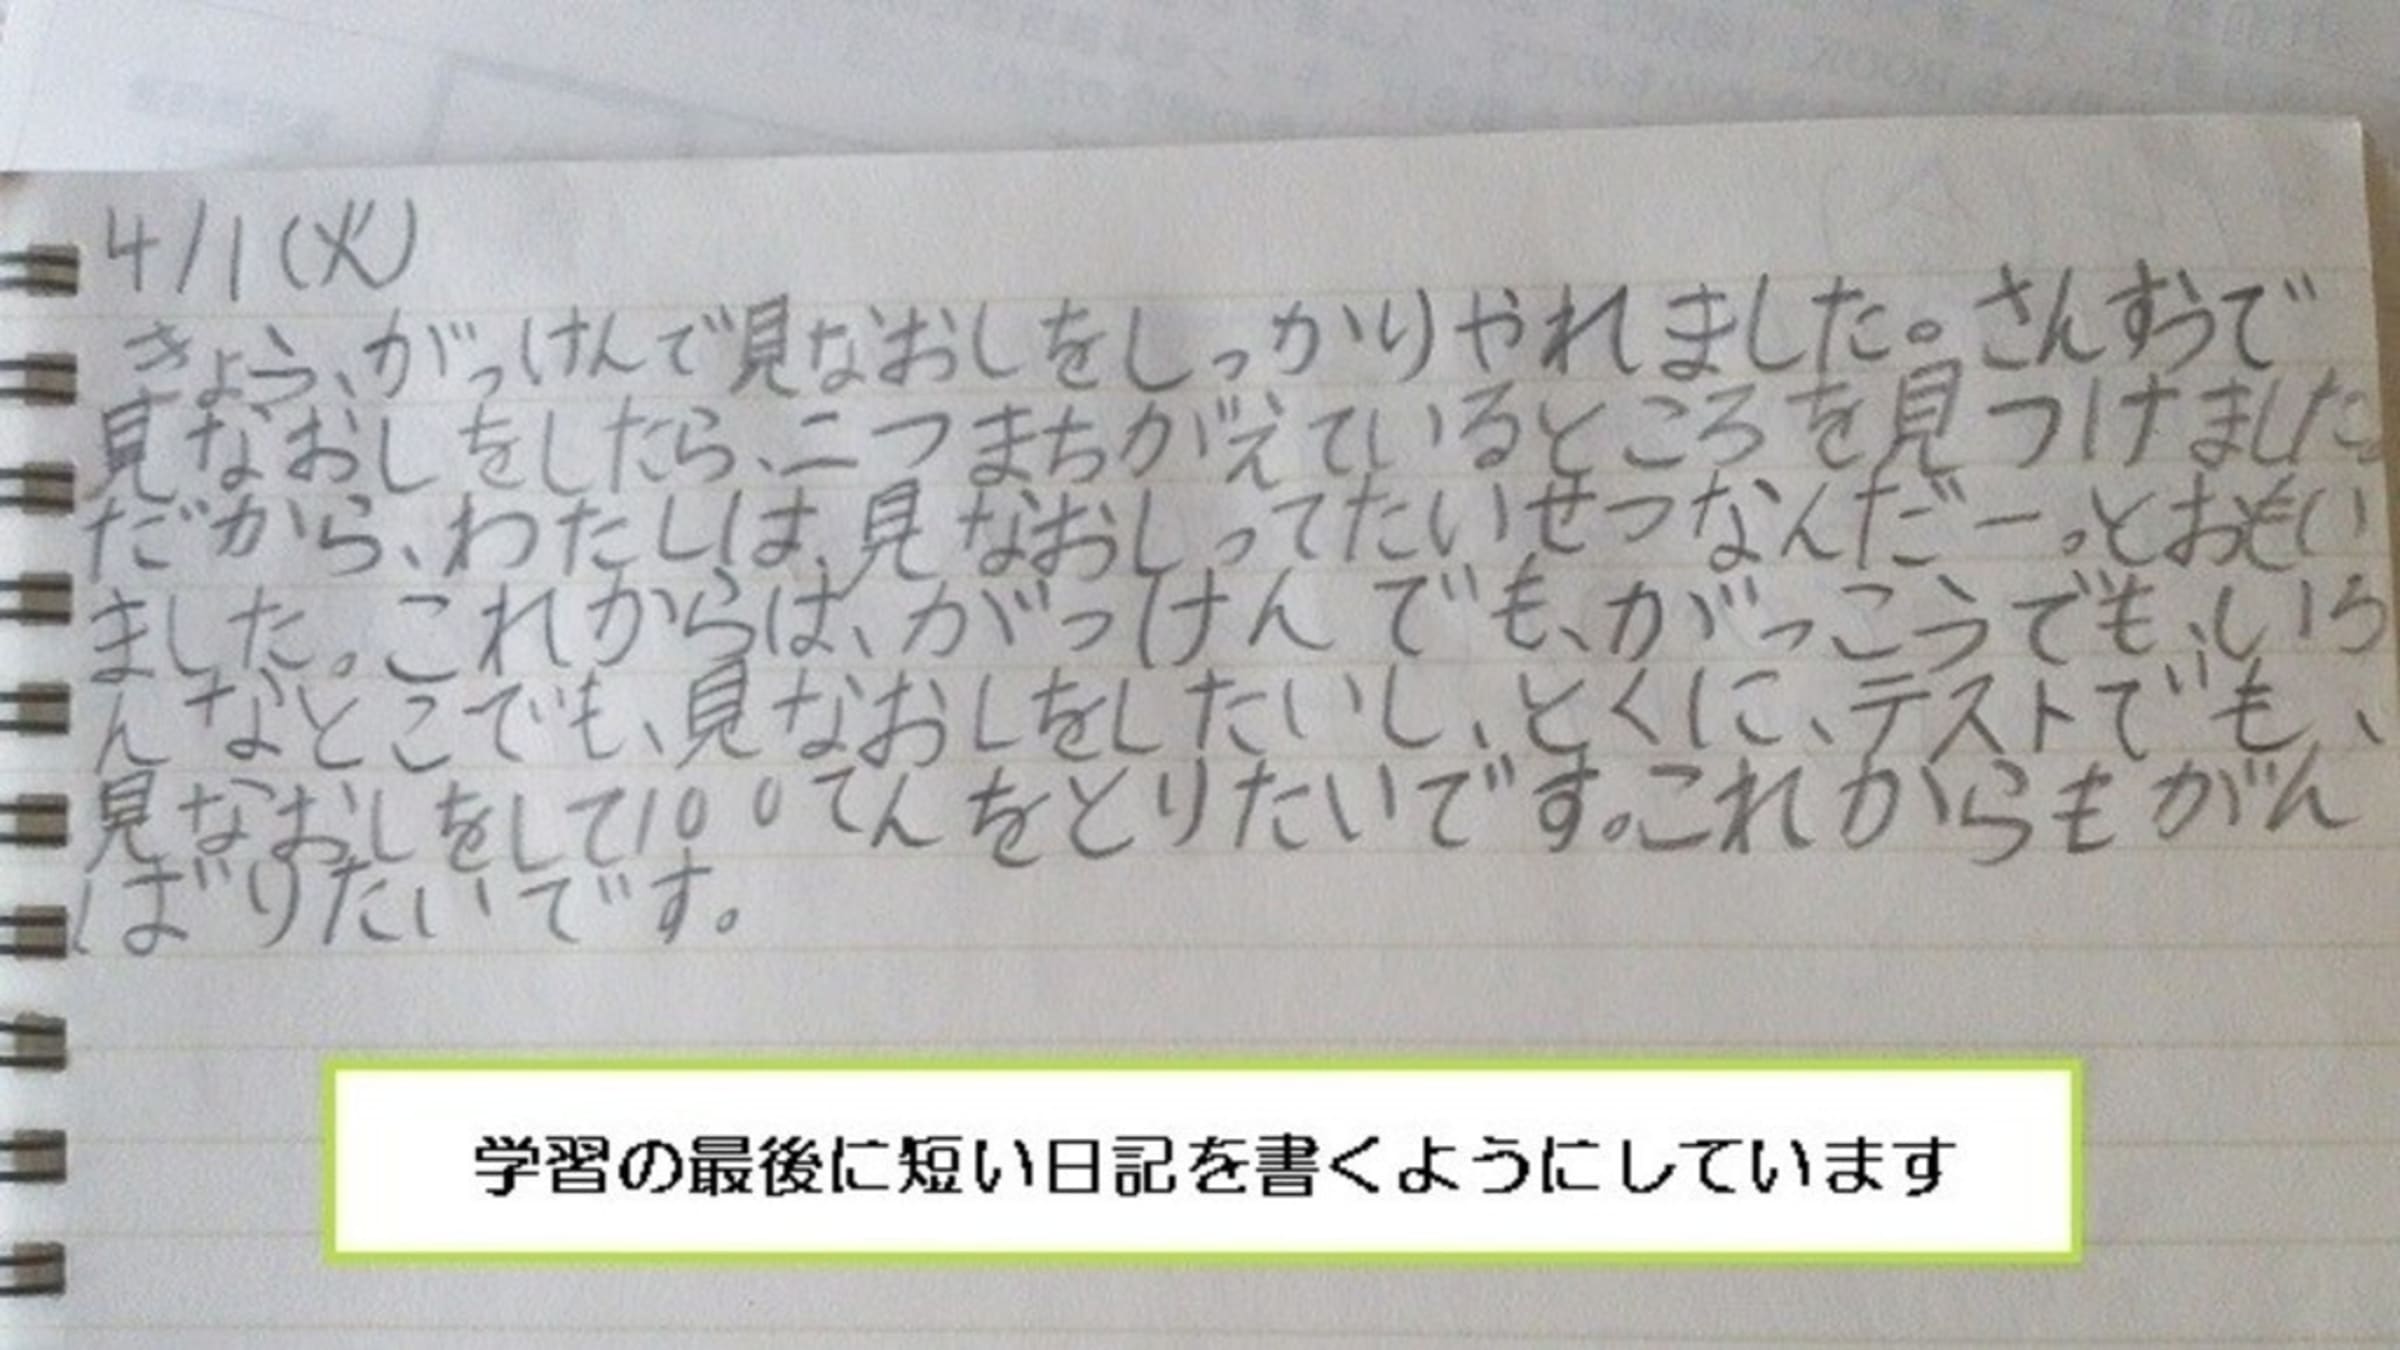 4/1(火)
きょう、がっけんで見なおしをしっかりやれました。さんすうで
見なおしをしたら、二つまちがえているところを見つけました。
だから、わたしは、見なおしってたいせつなんだーっとおもい
ました。これからは、がっけんでも、がっこうでも、いろ
んなとこでも、見なおしをしたいし、とくに、テストでも、
見なおしをして100てんをとりたいです。これからもがん
ばりたいです。
学習の最後に短い日記を書くようにしています